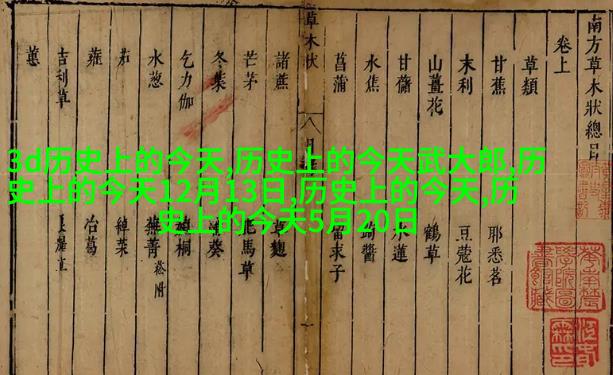 南方草木狀總目
卷上
草類
甘蕉
耶悉茗
末利
豆蔻花
山薑花
鶴草
甘藷
水蓮
水蕉
蒟醬
菖蒲
留求子
草木狀
諸蔗
草麴
芒茅
肥馬草
冬葉
蒲葵
乞力伽
赬桐
水葱
蕪菁
菘附
茄
綽菜
蕹
冶葛
吉利草
蕙
3d历史上的今天,历史上的今天武大郎,历
史上的今天12月13日,历史上的今天,历
史上的今天5月20日